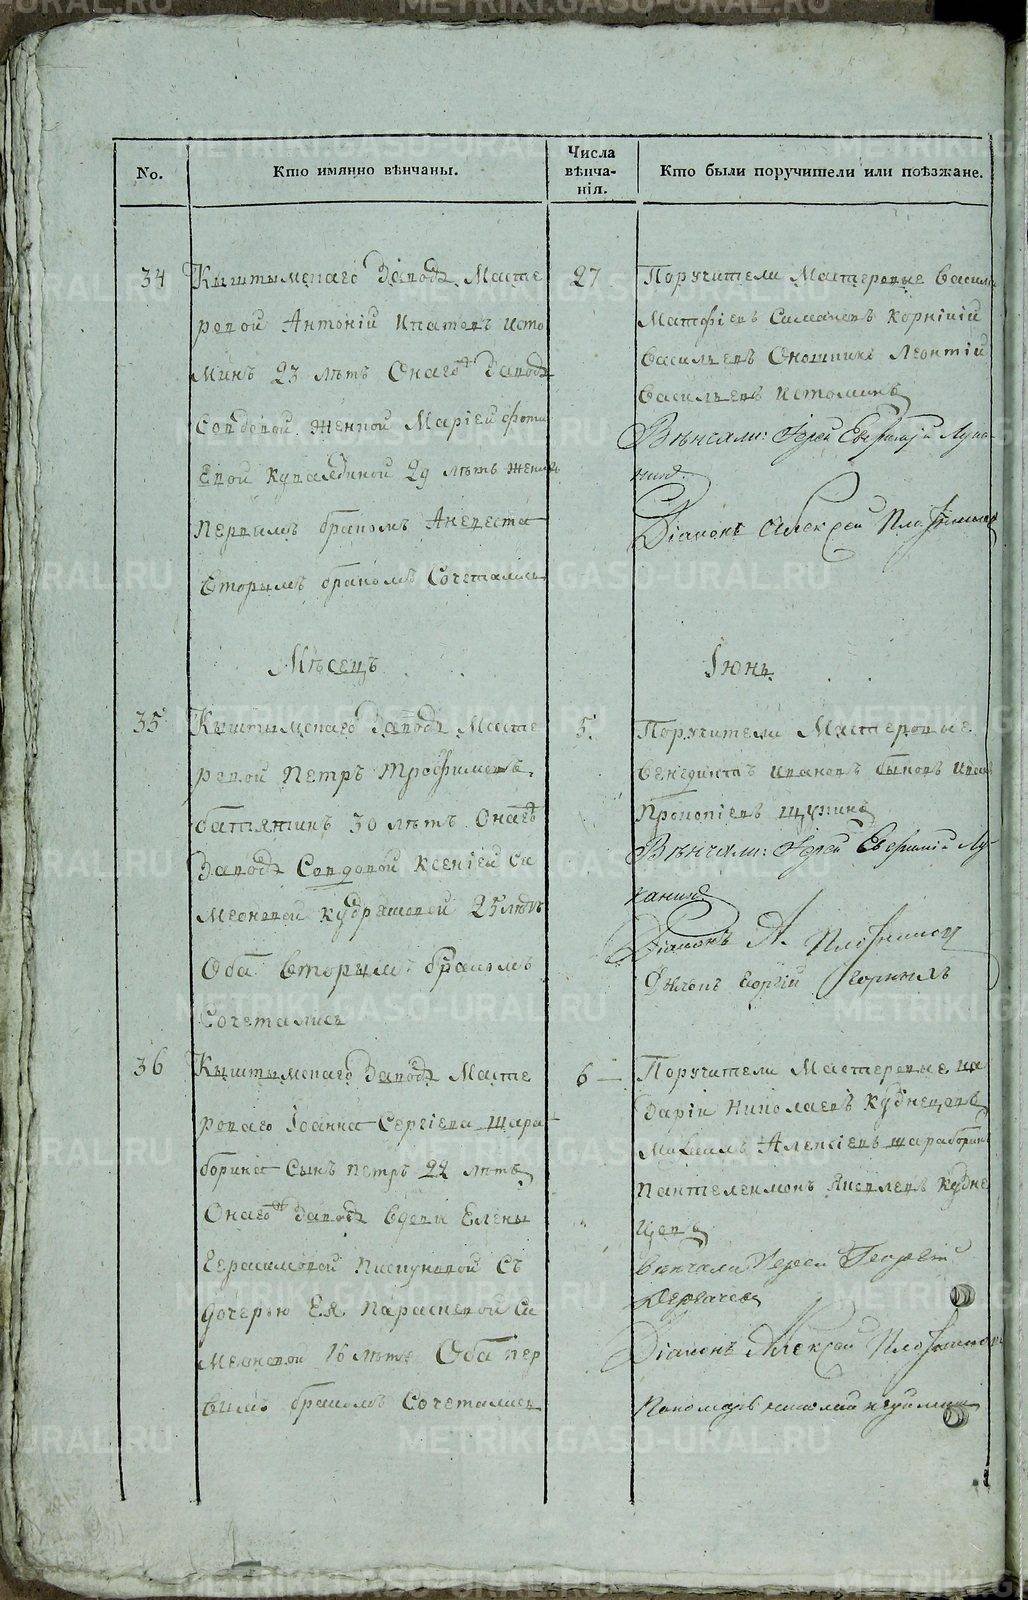 No.
Кто имянно вѣнчаны.
Числа
вѣнча-
нія.
Кто были поручители или поѣзжане.
34
Кыштымскаго Завода Масте
ровой Антоній Ипатовъ Исто
минъ 23 лѣтъ Онаго Завода
Солдкой Женкой Маріей
29 лѣтъ
Первымъ бракомъ А невеста
Вторымъ бракомъ Сочетались
27
Поручители Мастеровые Василей
Матфіевъ Корнилій
Васильевъ Леонтій
Васильевъ Истоминъ
Вѣнчали: Іерей Евфимій Лука
нинъ
Діаконъ Алексей Плотников
Мѣсецъ
Іюнь
35
Кыштымскаго Завода Масте
ровой Петръ Трофимовъ
30 лѣтъ Онаго
Завода Солдкой Ксеніей Си
меоновой Кудряшовой 25 лѣтъ
Оба Вторым бракомъ
Сочетались
5
Поручители Мастеровые
Венедиктъ Ивановъ Быковъ Иванъ
Прокопіевъ Щукинъ
Вѣнчали: Іерей Евфимій Лу
канинъ
Діаконъ А. Плотников
36
Кыштымскаго Завода Масте
роваго Іоанна Сергіева Шара
борина Сынъ Петръ 22 лѣтъ
Онаго Завода Вдовы Елены
Герасимовой Пискуновой Съ
дочерью Ея Параскевой Си
меоновой 16 лѣтъ Оба пер
вымъ бракомъ Сочетались
6
Поручители Мастеровые На
зарій Николаевъ Кузнецовъ
Михаилъ Алексіевъ Шараборинъ
Пантелеимонъ Яковлевъ Кузне
цовъ
Вѣнчали Іерей Георгій
Дерягасов
Діаконъ Алексей Плотников
Пономарь Николай
METRIKI.GASO-URAL.RU